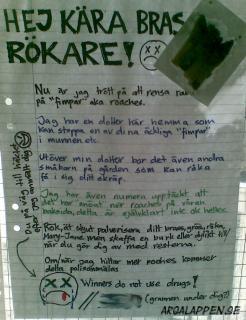 HEJ KÄRA BRAS
RÖKARE!
Nu är jag trött på att rensa
på "fimpar" aka roaches.
Jag har en dotter här hemma som
kan stoppa en av dina äckliga "fimpar"
i munnen etc.
Utöver min dotter bor det även andra
småbarn på gården som kan råka
få i sig ditt skräp.
Jag har även numera upptäckt att
det har snöat ner roaches på våran
baksida, detta är självklart inte ok heller.
Rök, ät, slut pulverisera ditt brass, gräs, röka,
Mary-Jane men skaffa en burk eller dylikt till
när du gör dig av med resterna.
Om/när jag hittar mer roaches kommer
detta polisanmälas
Winners do not use drugs!
(grannen under dig?)
ARGALAPPEN.SE